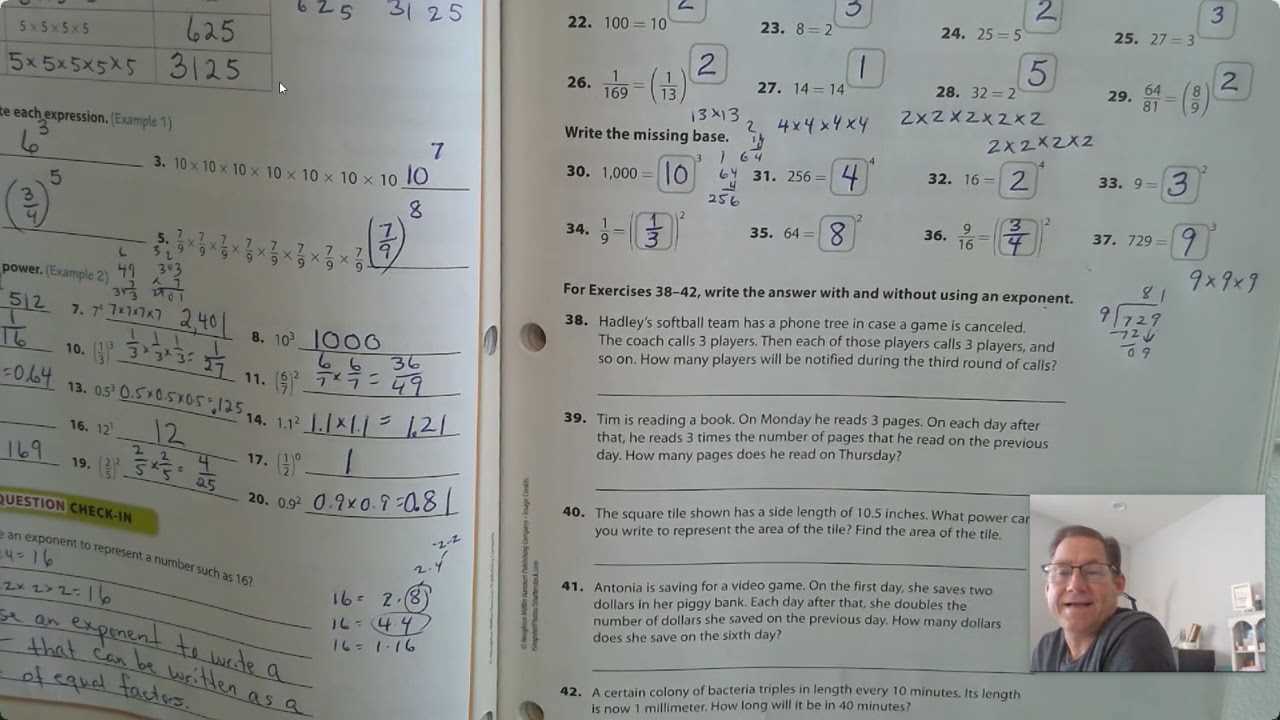 625 3125
5 × 5 × 5 × 5 625
5×5×5×5×5 3125
te each expression. (Example 1)
6³
3. 10 × 10 × 10 × 10 × 10 × 10 × 10 10⁷
(3/4)⁵
5. 7/9 × 7/9 × 7/9 × 7/9 × 7/9 × 7/9 × 7/9 × 7/9 (7/9)⁸
power. (Example 2)
49
343
343
× 7
2401
512
7. 7⁴ 7×7×7×7 2,401
8. 10³ 1000
1/16
10. (1/3)³ 1/3 × 1/3 × 1/3 = 1/27
11. (6/7)² 6/7 × 6/7 = 36/49
=0.64
13. 0.5³ 0.5×0.5×0.5=.125
14. 1.1² 1.1×1.1 = 1.21
16. 12¹ 12
17. (1/2)⁰ 1
169
19. (2/5)² 2/5 × 2/5 = 4/25
20. 0.9² 0.9×0.9=0.81
QUESTION CHECK-IN
e an exponent to represent a number such as 16?
4=16
2×2×2=16
se an exponent to write a
that can be written as a
of equal factors.
2·2
2·4
16 = 2·8
16 = 4·4
16 = 1·16
22. 100 = 10 2
23. 8 = 2 3
24. 25 = 5 2
25. 27 = 3 3
26. 1/169 = (1/13) 2
27. 14 = 14 1
28. 32 = 2 5
29. 64/81 = (8/9) 2
13×13
4×4×4×4
2×2×2×2×2
Write the missing base.
2×2×2×2
16
4
64
64
4
256
30. 1,000 = 10³
31. 256 = 4⁴
32. 16 = 2⁴
33. 9 = 3²
34. 1/9 = (1/3)²
35. 64 = 8²
36. 9/16 = (3/4)²
37. 729 = 9³
9×9×9
81
9)729
-72
09
For Exercises 38–42, write the answer with and without using an exponent.
38. Hadley's softball team has a phone tree in case a game is canceled.
The coach calls 3 players. Then each of those players calls 3 players, and
so on. How many players will be notified during the third round of calls?
39. Tim is reading a book. On Monday he reads 3 pages. On each day after
that, he reads 3 times the number of pages that he read on the previous
day. How many pages does he read on Thursday?
40. The square tile shown has a side length of 10.5 inches. What power can
you write to represent the area of the tile? Find the area of the tile.
41. Antonia is saving for a video game. On the first day, she saves two
dollars in her piggy bank. Each day after that, she doubles the
number of dollars she saved on the previous day. How many dollars
does she save on the sixth day?
42. A certain colony of bacteria triples in length every 10 minutes. Its length
is now 1 millimeter. How long will it be in 40 minutes?